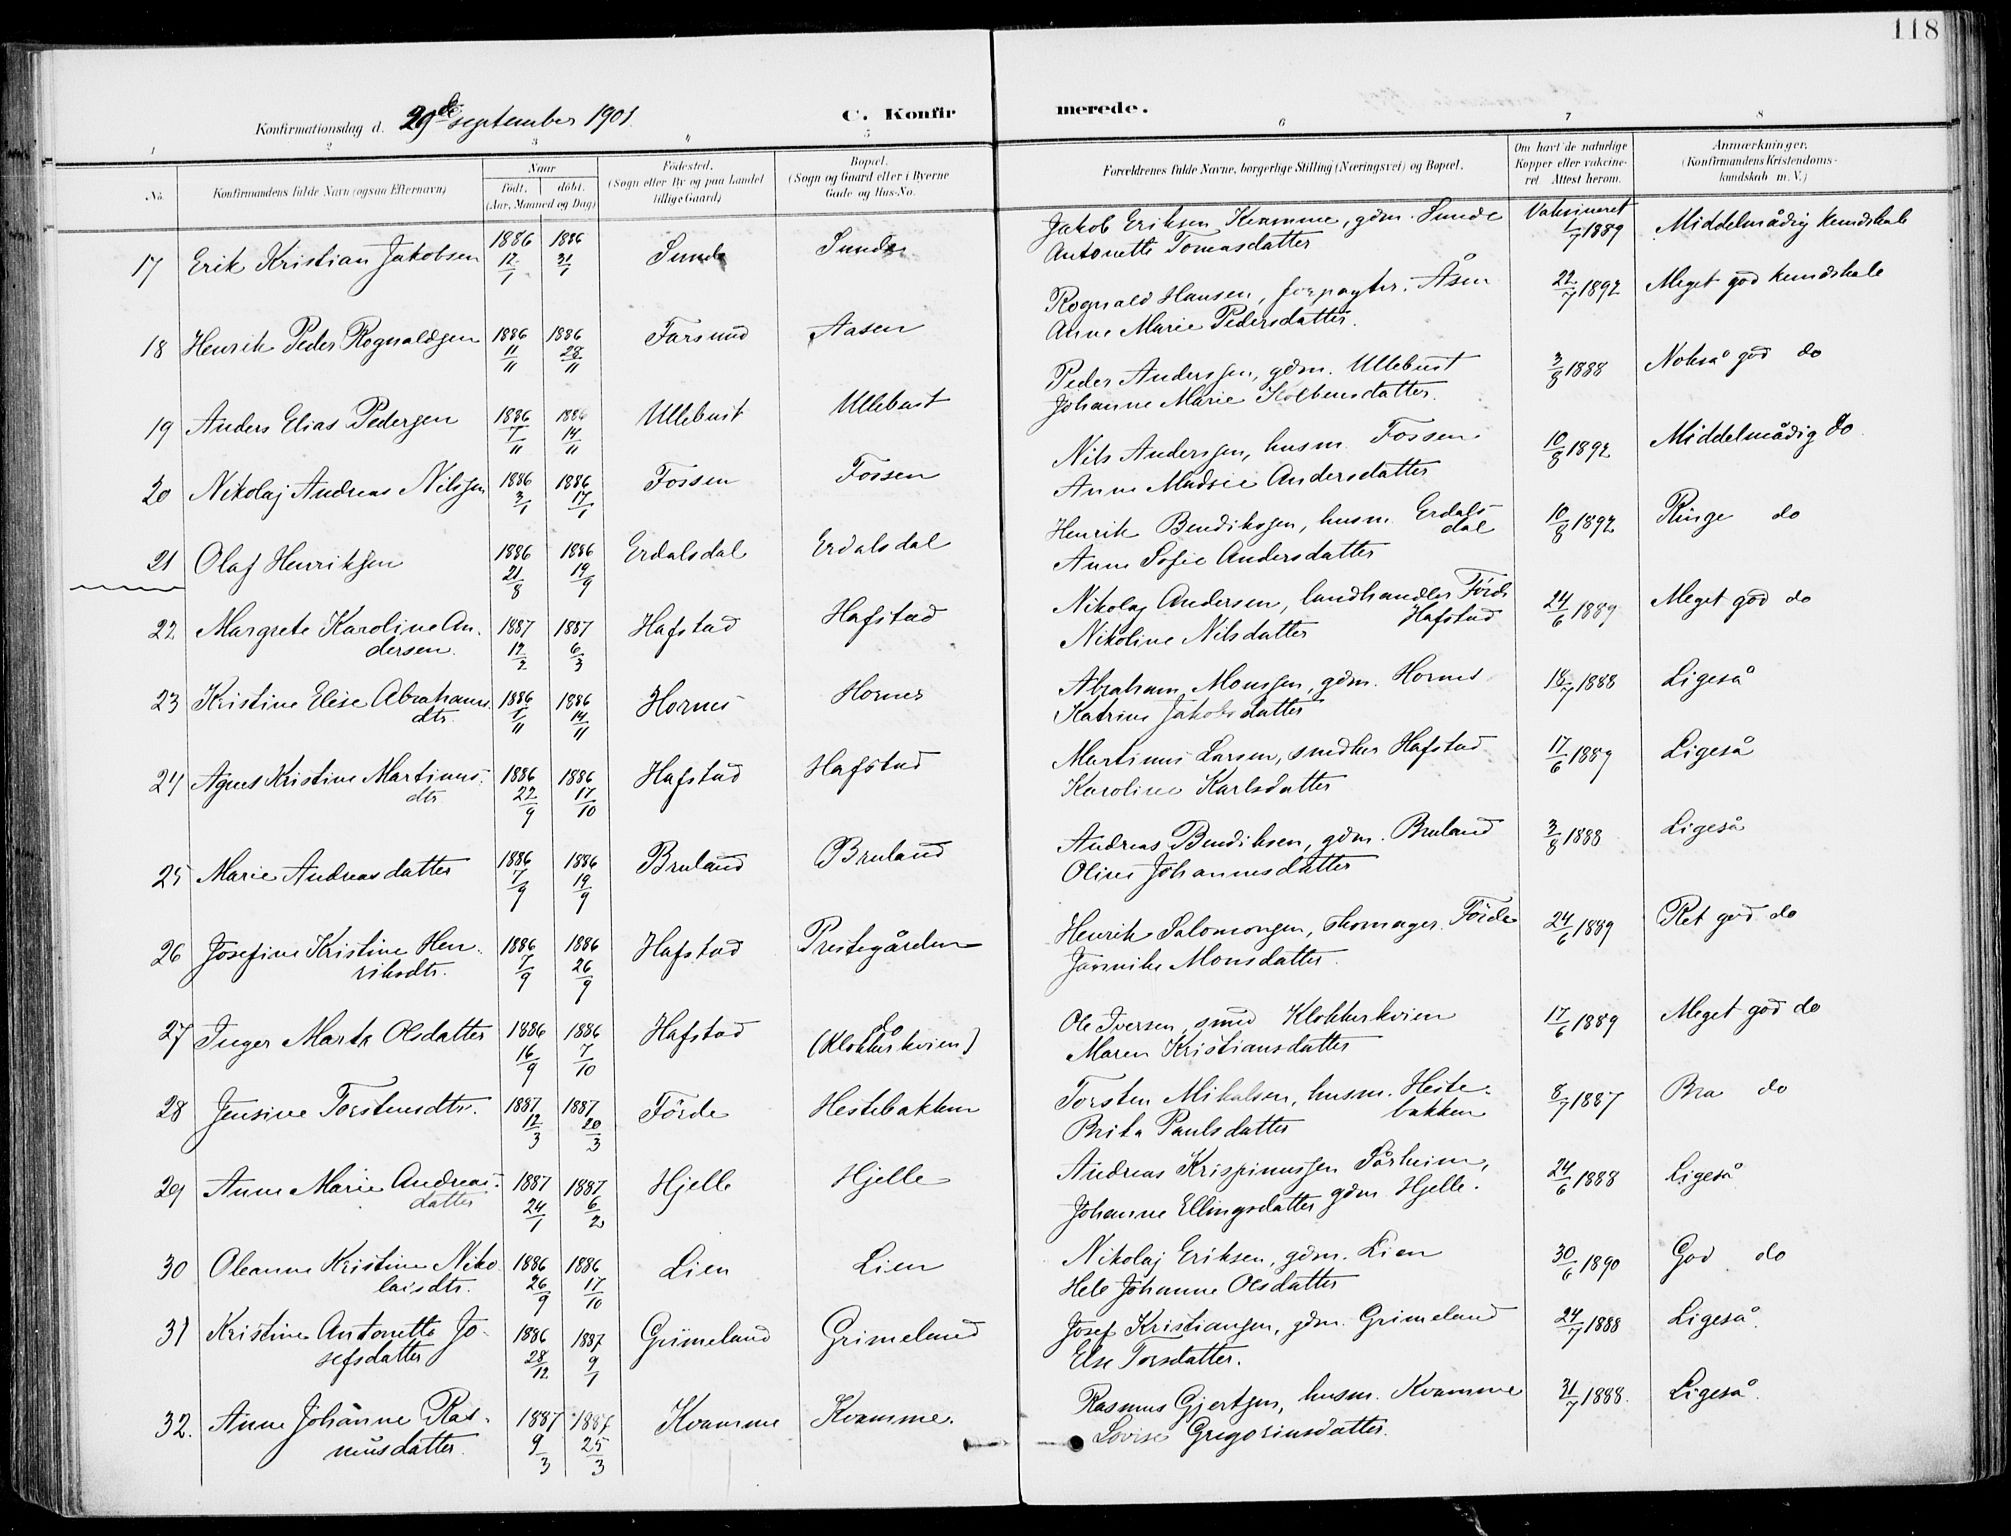 118
Konfirmationsdag d. 29de september 1901.
C. Konfirmerede.
1 2 3 4 5 6 7 8
No.
Konfirmandens fulde Navn (ogsaa Efternavn)
Naar
født. døbt.
(Aar, Maaned og Dag)
Fødested.
(Sogn eller By og paa Landet
tillige Gaard)
Bopæl.
(Sogn og Gaard eller i Byerne
Gade og Hus-No.
Forældrenes fulde Navne, borgerlige Stilling (Næringsvei) og Bopæl.
Om havt de naturlige
Kopper eller vakcine-
ret. Attest herom.
Anmærkninger.
(Konfirmandens Kristendoms-
kundskab m. V.)
17 Erik Kristian Jakobsen 1886 12/1 1886 31/1 Sunde Sunde Jakob Eriksen Kvamme, gdm. Sunde Vaksineret 1/7 1889 Middelmådig kundskab
Antonette Tomasdatter
18 Henrik Peder Rognaldsen 1886 11/11 1886 28/11 Farsund Aasen Rognald Hansen, forpagter. Åsen 22/7 1892 Meget god kundskab
Anne Marie Pedersdatter.
19 Anders Elias Pedersen 1886 7/11 1886 14/11 Ullebust Ullebust Peder Andersen, gdm. Ullebust 3/8 1888 Nokså god do
Johanne Marie Kolbensdatter.
20 Nikolaj Andreas Nilsen 1886 3/1 1886 17/1 Fossen Fossen Nils Andersen, husm. Fossen 10/8 1892 Middelmådig do
Anne Madsie Andersdatter
21 Olaf Henriksen 1886 21/8 1886 19/9 Erdalsdal Erdalsdal Henrik Bendiksen, husm. Erdals-
dal 10/8 1892 Ringe do
Anne Sofie Andersdatter
22 Margrete Karoline An-
dersen. 1887 12/2 1887 6/3 Hafstad Hafstad Nikolaj Andersen, landhandler Förde
Hafstad 24/6 1889 Meget god do
Nikoline Nilsdatter
23 Kristine Elise Abrahams
dtr. 1886 1/11 1886 14/11 Hornes Hornes Abraham Monsen, gdm. Hornes 18/7 1888 Ligeså
Katrine Jakobsdatter
24 Agnes Kristine Martinus-
dtr 1886 22/9 1886 17/10 Hafstad Hafstad Martinus Larsen, snedker Hafstad 17/6 1889 Ligeså
Karoline Karlsdatter
25 Marie Andreasdatter 1886 7/9 1886 19/9 Bruland Bruland Andreas Bendiksen, gdm. Bruland 3/8 1888 Ligeså
Oline Johannesdatter
26 Josefine Kristine Hen-
riksdtr. 1886 7/9 1886 26/9 Hafstad Prestegården Henrik Salomonsen, skomager. Förde 24/6 1889 Ret god do
Jannike Monsdatter.
27 Inger Marta Olsdatter 1886 16/9 1886 7/10 Hafstad do
(Klokkerkvien) Ole Iversen, smed Klokkerkvien 17/6 1889 Meget god do
Maren Kristiansdatter
28 Jensine Torstensdtr. 1887 12/3 1887 20/3 Förde Hestebakken Torsten Mikalsen, husm. Heste-
bakken 8/7 1887 Bra do
Brita Paulsdatter
29 Anne Marie Andreas-
datter 1887 24/1 1887 6/2 Hjelle Hjelle Andreas Krispinussen Sårheim, 24/6 1888 Ligeså
Johanne Ellingsdatter gdm. Hjelle.
30 Oleanne Kristine Niko
laisdtr. 1886 26/9 1886 17/10 Lien Lien Nikolaj Eriksen, gdm. Lien 30/6 1890 God do
Hele Johanne Olsdatter
31 Kristine Antonette Jo-
sefsdatter 1886 28/12 1887 9/1 Grimeland Grimeland Josef Kristiansen, gdm. Grimeland 24/7 1888 Ligeså.
Else Torsdatter.
32. Anne Johanne Ras-
musdatter. 1887 9/3 1887 25/3 Kvamme Kvamme. Rasmus Gjertsen, husm. Kvamme 31/7 1888. Ligeså.
Lovise Gregoriusdatter.